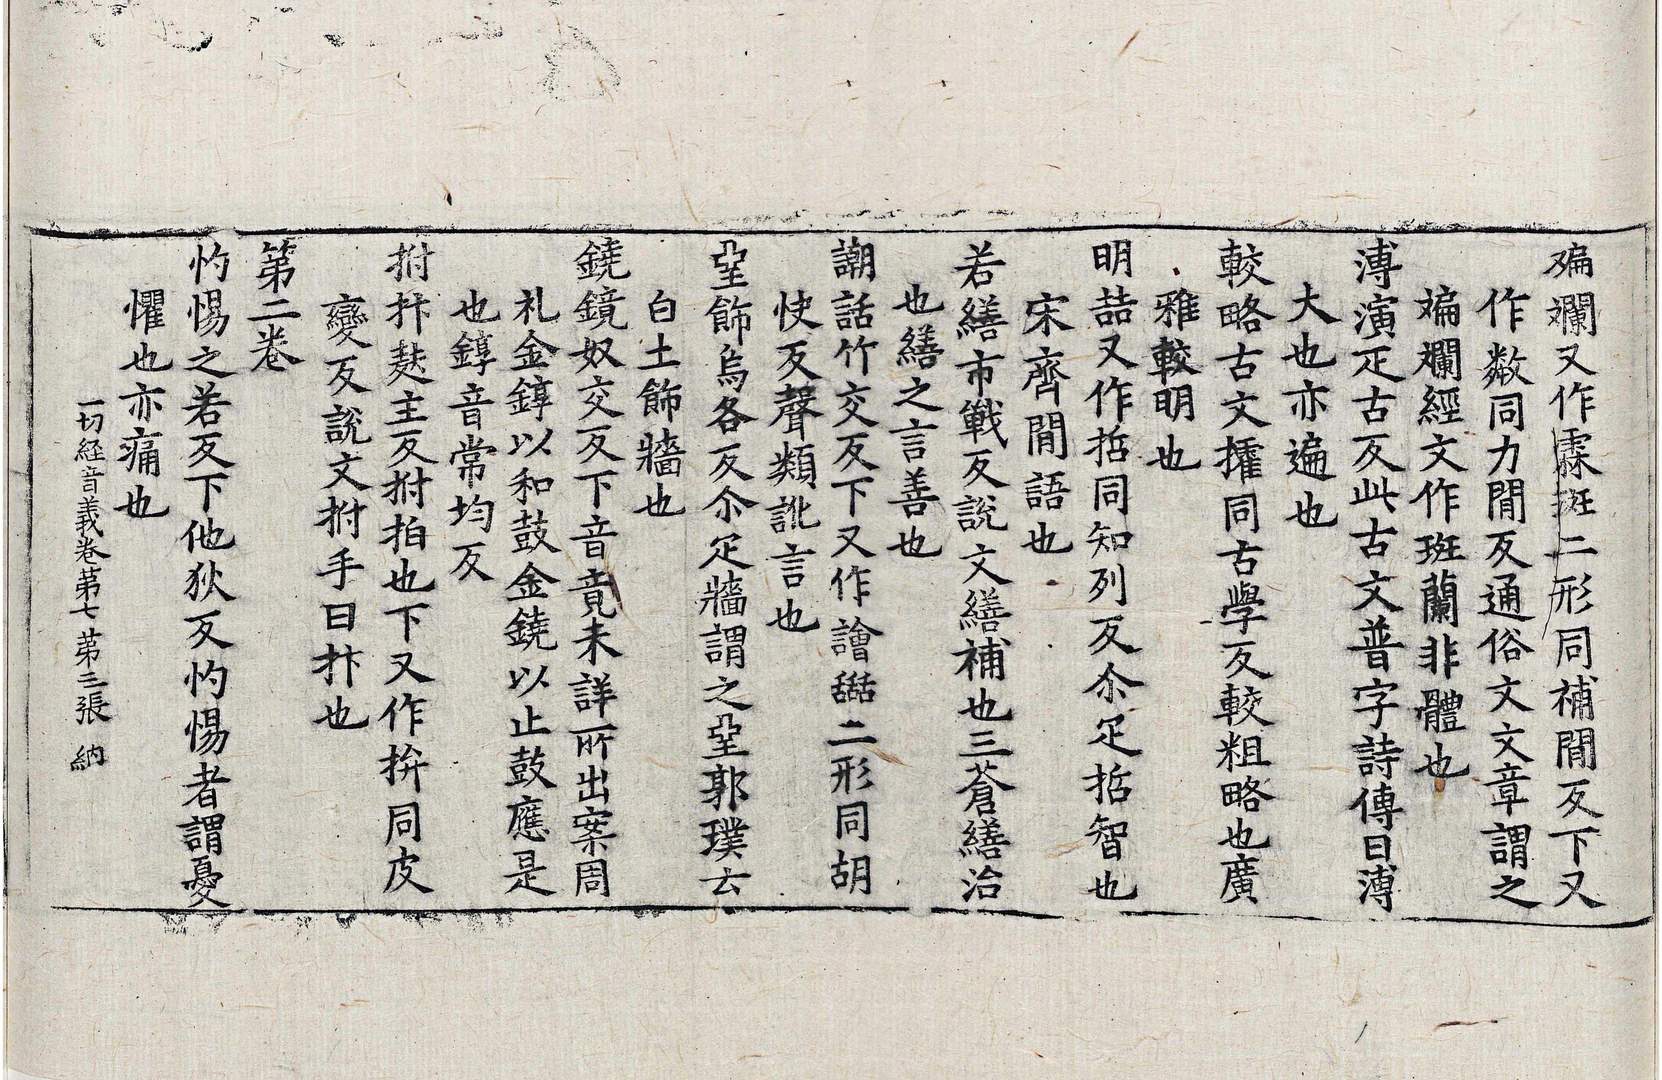 斒斕又作霦斑二形同補閒反下又
作斕同力閒反通俗文文章謂之
斒斕經文作斑蘭非體也
溥演疋古反此古文普字詩傳曰溥
大也亦遍也
較略古文㩁同古學反較粗略也廣
雅較明也
明喆又作哲同知列反尒疋哲智也
宋齊閒語也
若繕市戰反說文繕補也三蒼繕治
也繕之言善也
譋話竹交反下又作譮䛡二形同胡
快反聲類訛言也
堊飾烏各反尒疋牆謂之堊郭璞云
白土飾牆也
鐃鏡奴交反下音竟未詳所出案周
礼金錞以和鼓金鐃以止鼓應是
也錞音常均反
拊抃麸主反拊拍也下又作拚同皮
變反說文拊手曰抃也
第二卷
灼惕之若反下他狄反灼惕者謂憂
懼也亦痛也
一切経音義卷第七 第三張 納